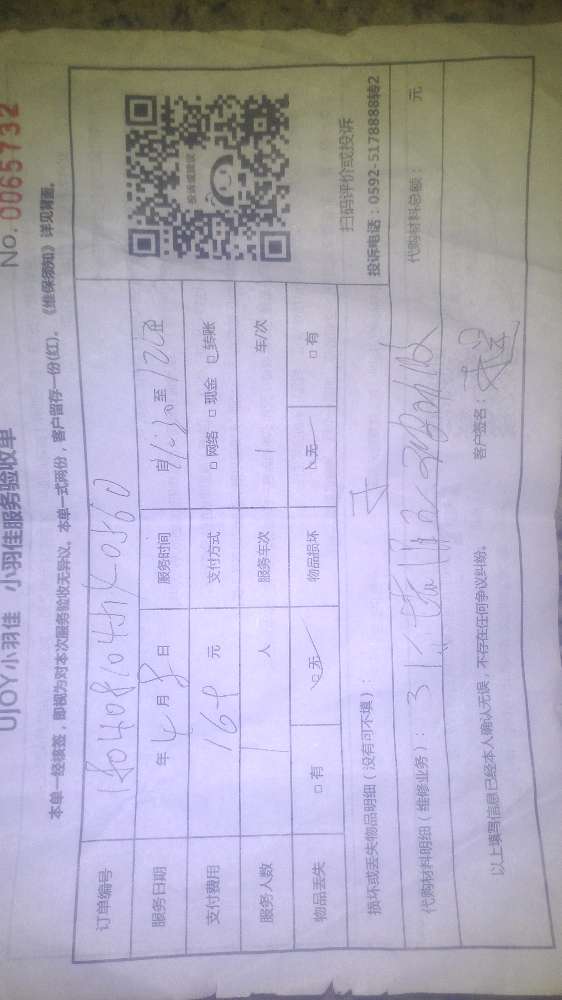 UJOY小羽佳 小羽佳服务验收单 No.0065732
本单一经签签，即视为对本次服务验收无异议。本单一式两份，客户留存一份(红)。《维保须知》详见背面。
订单编号
服务日期 年 4 月 8 日 服务时间 自 9:30 至
支付费用 169 元 支付方式 □网络 □现金 □转账
服务人数 1 人 服务车次 1 车/次
物品丢失 □有 □无 物品损坏 □无 □有
投诉或建议
扫码评价或投诉
投诉电话：0592-5178888转2
损坏或丢失物品明细（没有可不填）： 无
代购材料明细（维修业务）： 代购材料总额： 元
以上填写信息已经本人确认无误，不存在任何争议纠纷。 客户签名：